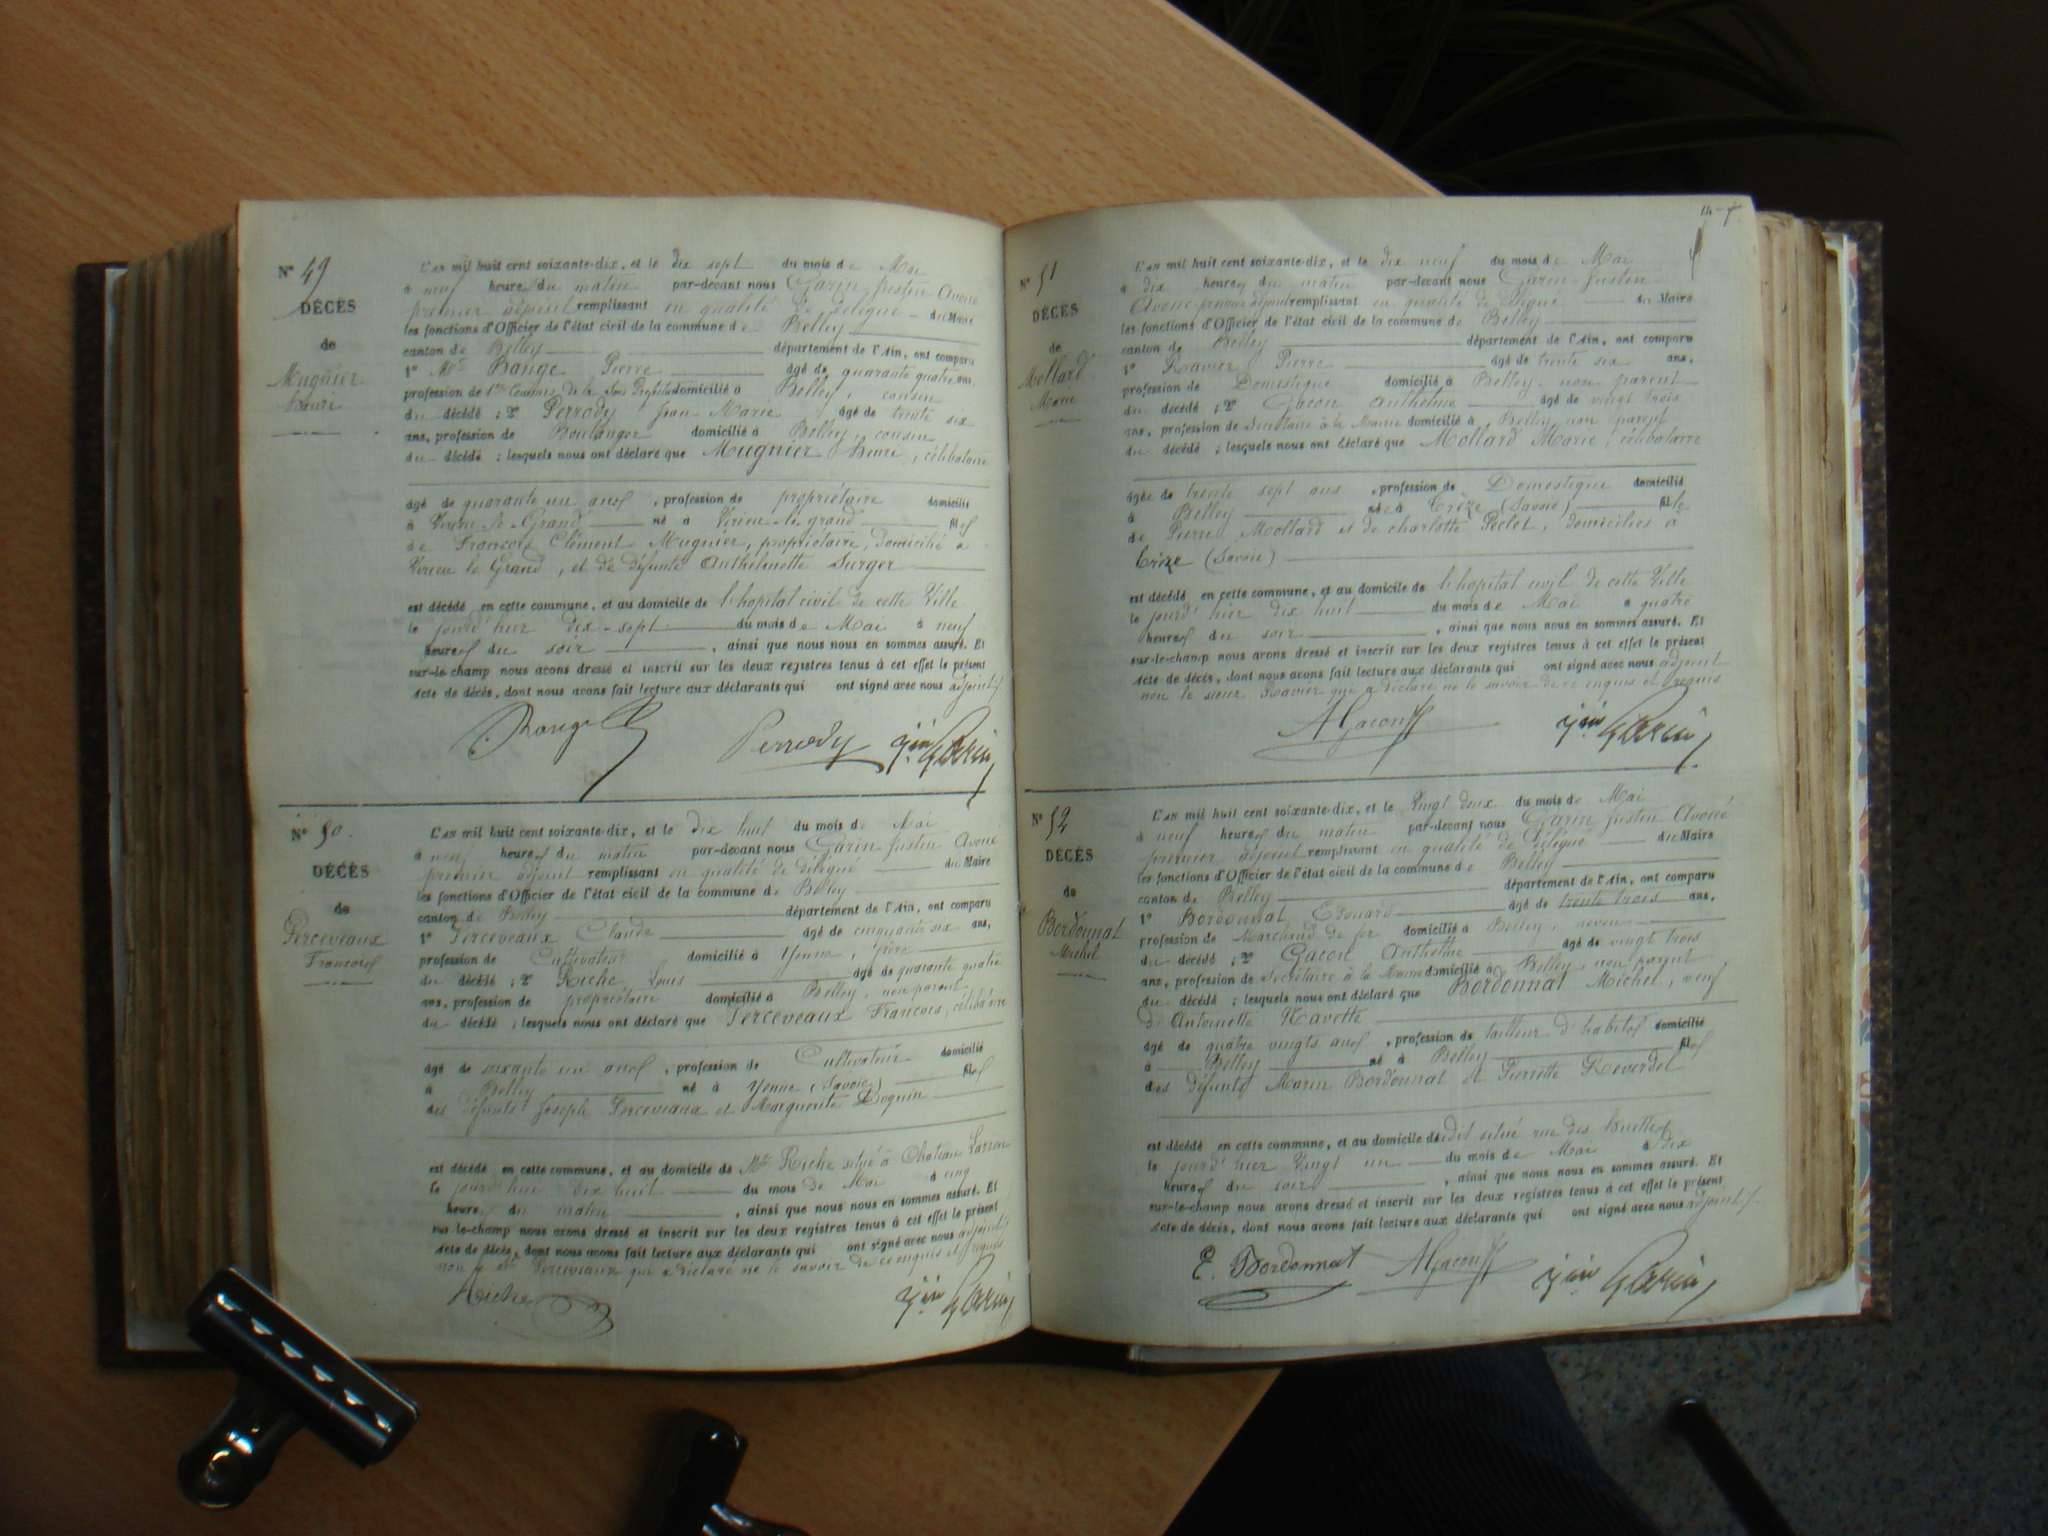 N° 49
DÉCÈS
de
Mugnier
henri
L'an mil huit cent soixante-dix, et le dix sept du mois de Mai
à neuf heures du matin par-devant nous Garin Justin Avoué
premier adjoint remplissant en qualité de délégué du Maire
les fonctions d'Officier de l'état civil de la commune de Belley
canton de Belley département de l'Ain, ont comparu
1° Mr Bange Pierre âgé de quarante quatre ans,
profession de de la Sous Préfecture domicilié à Belley, cousin
du décédé ; 2° Perrody Jean Marie âgé de trente six
ans, profession de Boulanger domicilié à Belley, cousin
du décédé ; lesquels nous ont déclaré que Mugnier henri, célibataire
âgé de quarante un ans, profession de propriétaire domicilié
à Virieu le Grand né à Virieu-le-grand fils
de François Clément Mugnier, propriétaire, domicilié à
Virieu le Grand, et de défunte Anthelmette Surger
est décédé en cette commune, et au domicile de l'hopital civil de cette Ville
le jourd'hier dix-sept du mois de Mai à neuf
heures du soir, ainsi que nous nous en sommes assuré. Et
sur-le-champ nous avons dressé et inscrit sur les deux registres tenus à cet effet le présent
acte de décès, dont nous avons fait lecture aux déclarants qui ont signé avec nous adjoint
Perrody Jin Garin
N° 50
DÉCÈS
de
Perceveaux
François
L'an mil huit cent soixante-dix, et le dix huit du mois de Mai
à neuf heures du matin par-devant nous Garin Justin Avoué
premier adjoint remplissant en qualité de délégué du Maire
les fonctions d'Officier de l'état civil de la commune de Belley
canton de Belley département de l'Ain, ont comparu
1° Perceveaux Claude âgé de cinquante six ans,
profession de Cultivateur domicilié à Yenne, frère
du décédé ; 2° Riche Louis âgé de quarante quatre
ans, profession de propriétaire domicilié à Belley, non parent
du décédé ; lesquels nous ont déclaré que Perceveaux François, célibataire
âgé de soixante un ans, profession de Cultivateur domicilié
à Belley né à Yenne (Savoie) fils
des défunts Joseph Perceveaux et Marguerite
est décédé en cette commune, et au domicile de Mr Riche situé à Chateau
le jourd'hui dix huit du mois de Mai à cinq
heures du matin, ainsi que nous nous en sommes assuré. Et
sur-le-champ nous avons dressé et inscrit sur les deux registres tenus à cet effet le présent
acte de décès, dont nous avons fait lecture aux déclarants qui ont signé avec nous adjoint
non le sr Perceveaux qui a déclaré ne le savoir de ce enquis et requis
Riche Jin Garin
N° 51
DÉCÈS
de
Mollard
Marie
L'an mil huit cent soixante-dix, et le dix neuf du mois de Mai
à dix heures du matin par-devant nous Garin Justin
Avoué premier adjoint remplissant en qualité de délégué du Maire
les fonctions d'Officier de l'état civil de la commune de Belley
canton de Belley département de l'Ain, ont comparu
1° Ravier Pierre âgé de trente six ans,
profession de Domestique domicilié à Belley non parent
du décédé ; 2° Gacon Anthelme âgé de vingt trois
ans, profession de Secrétaire à la Mairie domicilié à Belley, non parent
du décédé ; lesquels nous ont déclaré que Mollard Marie, célibataire
âgée de trente sept ans, profession de Domestique domicilié
à Belley née à (Savoie) fille
de Pierre Mollard et de charlotte Peclet, domiciliés à
(Savoie)
est décédé en cette commune, et au domicile de l'hopital civil de cette Ville
le jourd'hier dix huit du mois de Mai à quatre
heures du soir, ainsi que nous nous en sommes assuré. Et
sur-le-champ nous avons dressé et inscrit sur les deux registres tenus à cet effet le présent
acte de décès, dont nous avons fait lecture aux déclarants qui ont signé avec nous adjoint
non le sieur Ravier que a déclaré ne le savoir de ce enquis et requis
AGacon Jin Garin
N° 52
DÉCÈS
de
Bordonnat
Michel
L'an mil huit cent soixante-dix, et le Vingt deux du mois de Mai
à neuf heures du matin par-devant nous Garin Justin Avoué
premier adjoint remplissant en qualité de Délégué du Maire
les fonctions d'Officier de l'état civil de la commune de Belley
canton de Belley département de l'Ain, ont comparu
1° Bordonnat Edouard âgé de trente trois ans,
profession de Marchand de fer domicilié à Belley, neveu
du décédé ; 2° Gacon Anthelme âgé de vingt trois
ans, profession de Secrétaire à la Mairie domicilié à Belley, non parent
du décédé ; lesquels nous ont déclaré que Bordonnat Michel, veuf
d'Antoinette Navette
âgé de quatre vingts ans, profession de tailleur d'habits domicilié
à Belley né à Belley fils
des défunts Marin Bordonnat et Pierrette Reverdel
est décédé en cette commune, et au domicile dudit situé rue des
le jourd'hier Vingt un du mois de Mai à dix
heures du soir, ainsi que nous nous en sommes assuré. Et
sur-le-champ nous avons dressé et inscrit sur les deux registres tenus à cet effet le présent
acte de décès, dont nous avons fait lecture aux déclarants qui ont signé avec nous adjoint
E. Bordonnat AGacon Jin Garin